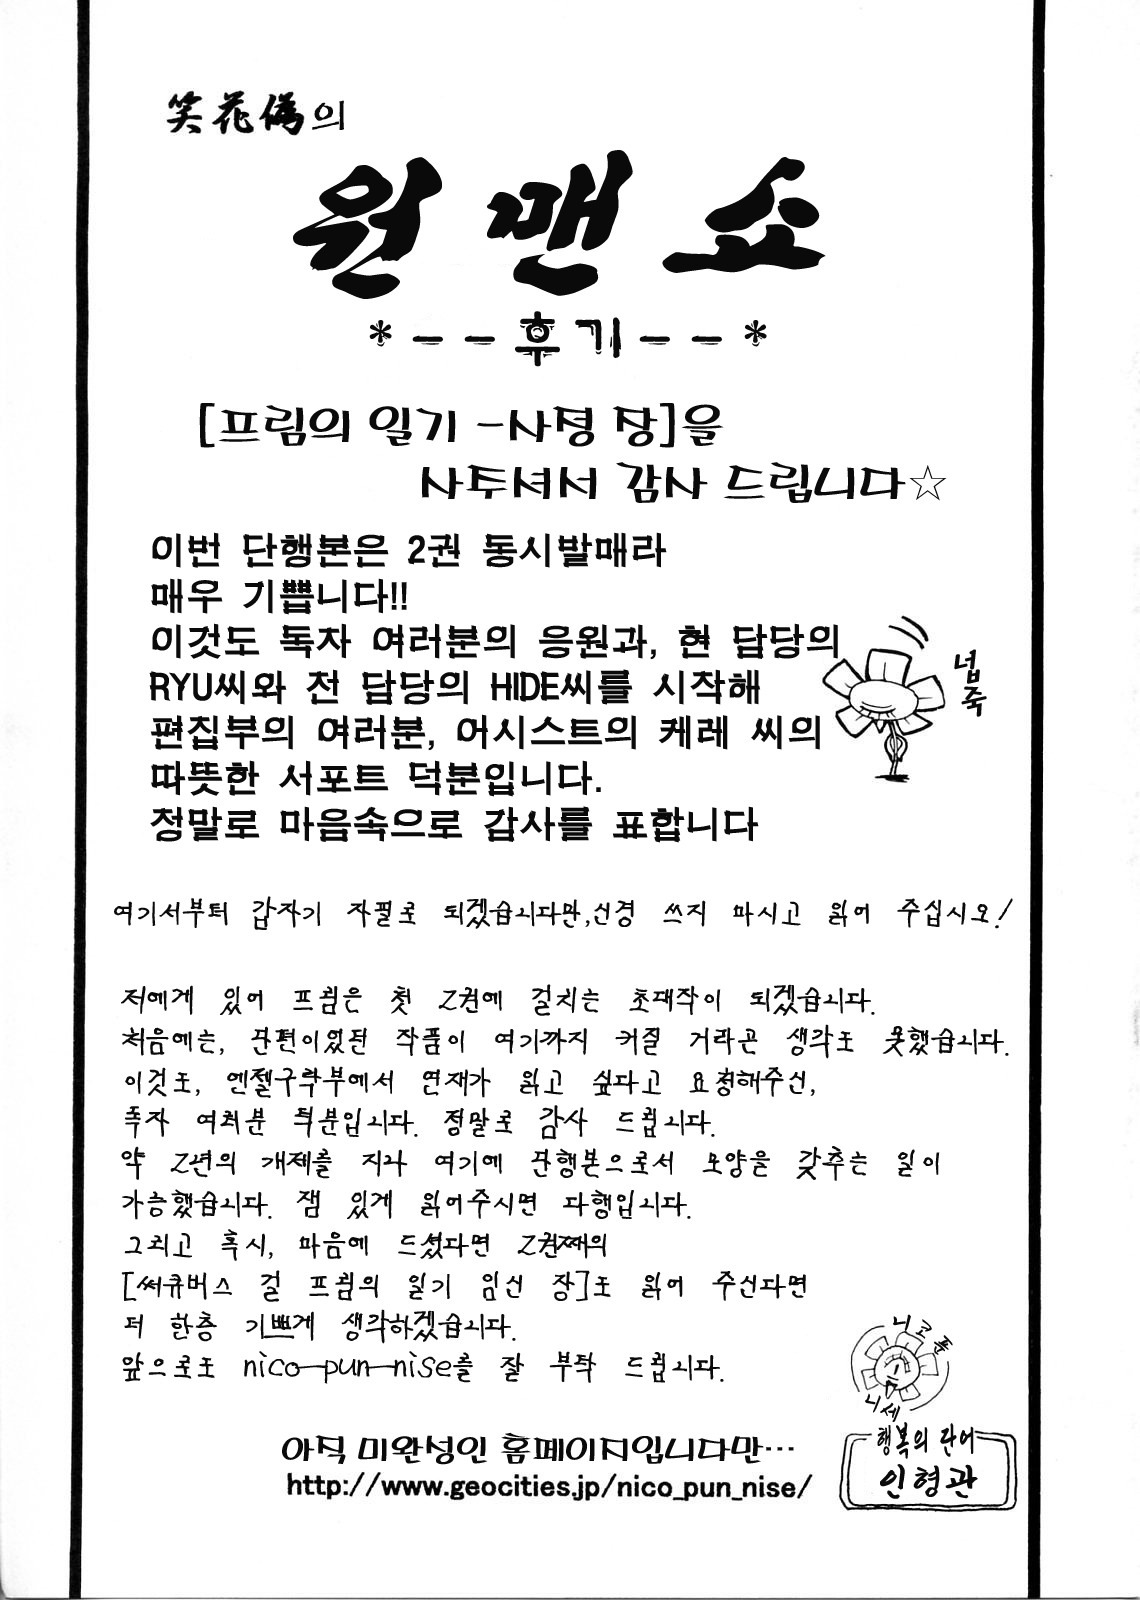 笑花偽의
원맨쇼
*--후기--*
[프림의 일기 -사명 장]을
사투셔서 감사 드립니다☆
이번 단행본은 2권 동시발매라
매우 기쁩니다!!
이것도 독자 여러분의 응원과, 현 담당의
RYU씨와 전 담당의 HIDE씨를 시작해
편집부의 여러분, 어시스트의 케레 씨의
따뜻한 서포트 덕분입니다.
정말로 마음속으로 감사를 표합니다
넙죽
여기서부터 갑자기 자필로 되겠습니다만,신경 쓰지 마시고 읽어 주십시오!
저에게 있어 프림은 첫 2권에 걸치는 초대작이 되겠습니다.
처음에는, 단편이었던 작품이 여기까지 커질 거라곤 생각도 못했습니다.
이것도, 엔젤구락부에서 연재가 읽고 싶다고 요청해주신,
독자 여러분 덕분입니다. 정말로 감사 드립니다.
약 2년의 개제를 지나 여기에 단행본으로서 모양을 갖추는 일이
가능했습니다. 잼 있게 읽어주시면 다행입니다.
그리고 혹시, 마음에 드셨다면 2권째의
[써큐버스 걸 프림의 일기 임신 장]도 읽어 주신다면
더 한층 기쁘게 생각하겠습니다.
앞으로도 nico-pun-nise를 잘 부탁 드립니다.
니코푼
니세
행복의 단어
인형관
아직 미완성인 홈페이지입니다만…
http://www.geocities.jp/nico_pun_nise/